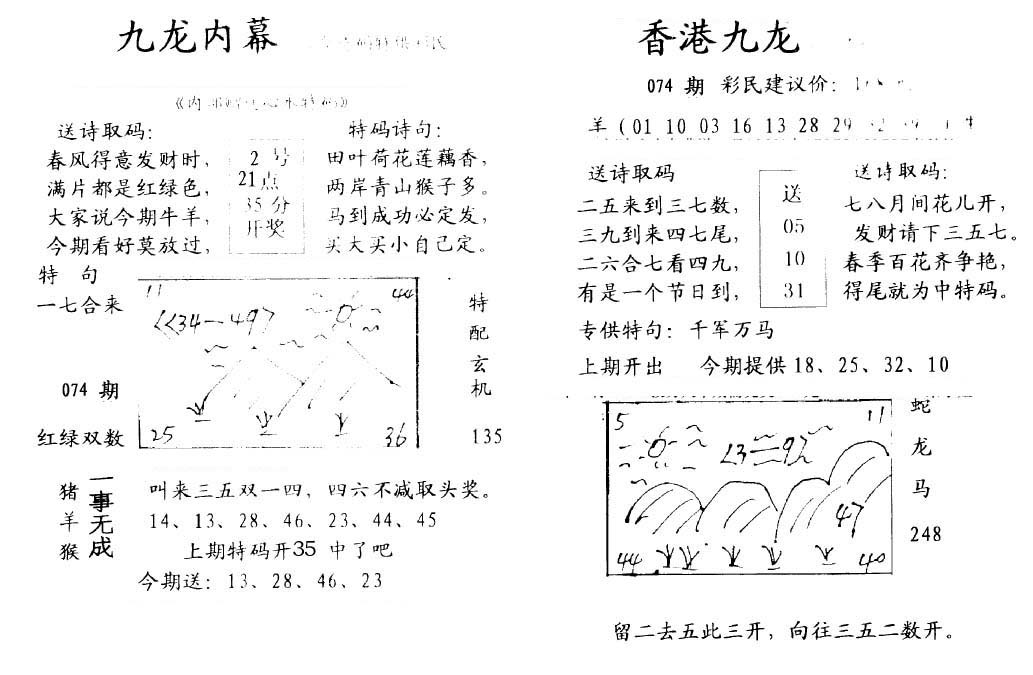 九龙内幕
送诗取码：
春风得意发财时，
满片都是红绿色，
大家说今期牛羊，
今期看好莫放过，
2号
21点
35分
开奖
特码诗句：
田叶荷花莲藕香，
两岸青山猴子多。
马到成功必定发，
买大买小自己定。
特 句
一七合来
074 期
红绿双数
11
44
<<34一49>
25
36
特
配
玄
机
135
猪
羊
猴
一事无成
叫来三五双一四，四六不减取头奖。
14、13、28、46、23、44、45
上期特码开35 中了吧
今期送：13、28、46、23
香港九龙
074 期 彩民建议价：
羊（01 10 03 16 13 28 29
送诗取码
二五来到三七数，
三九到来四七尾，
二六合七看四九，
有是一个节日到，
送
05
10
31
送诗取码：
七八月间花儿开，
发财请下三五七。
春季百花齐争艳，
得尾就为中特码。
专供特句：千军万马
上期开出 今期提供 18、25、32、10
5
11
47
44
40
蛇
龙
马
248
留二去五此三开，向往三五二数开。